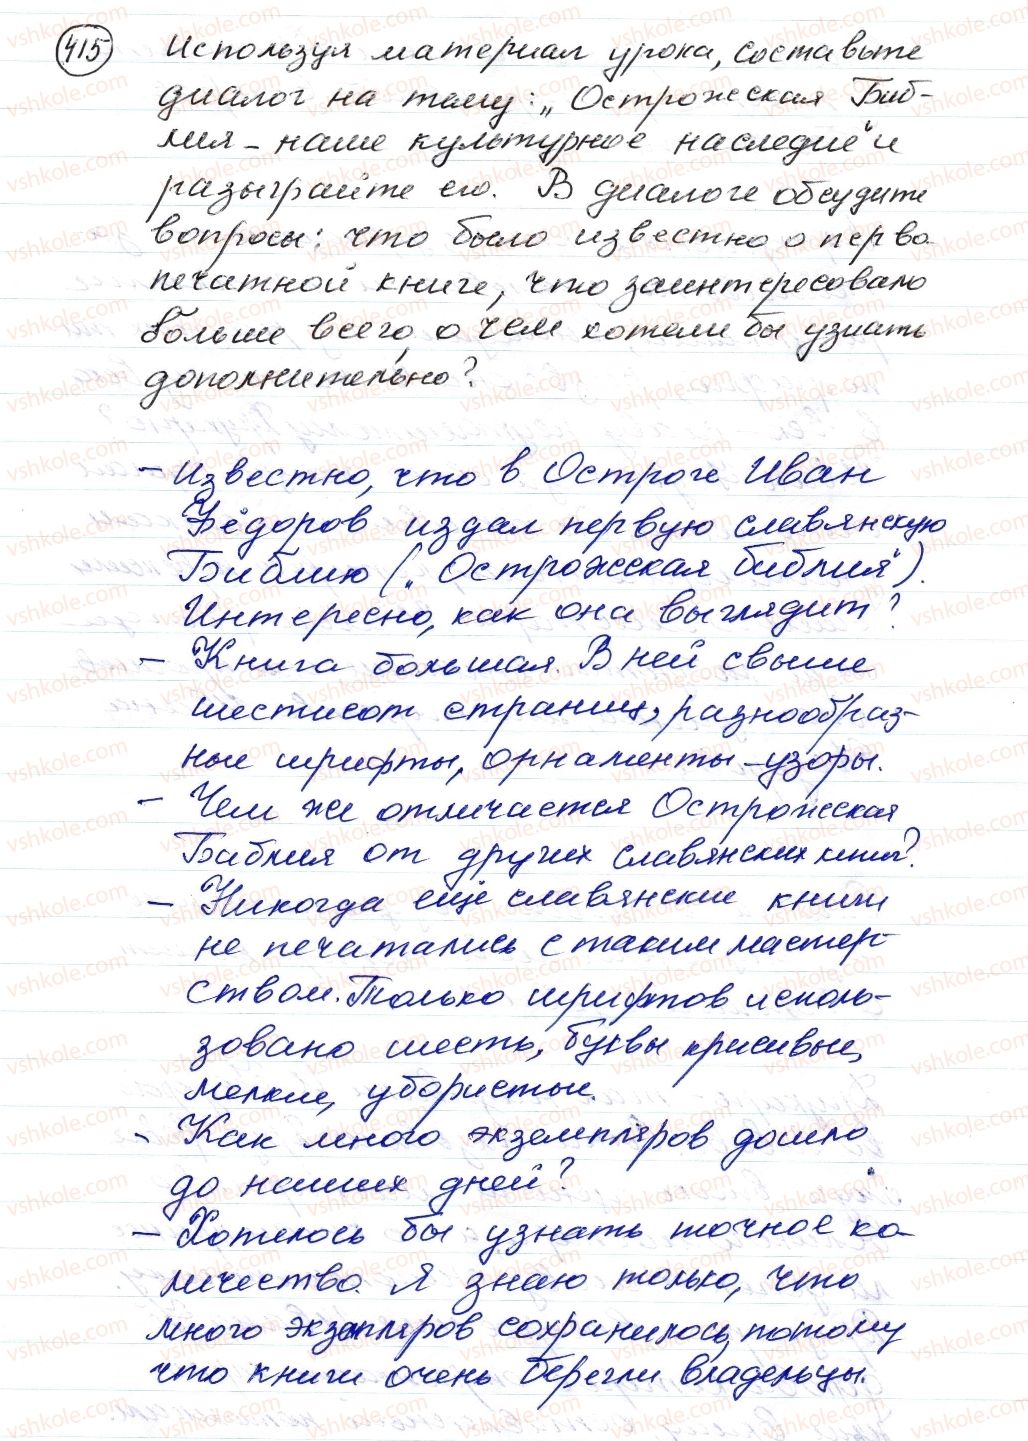 415 Используя материал урока, составьте
диалог на тему: „Острожская Биб-
лия – наше культурное наследие" и
разыграйте его. В диалоге обсудите
вопросы: что было известно о перво
печатной книге, что заинтересовало
больше всего, о чем хотели бы узнать
дополнительно?
– Известно, что в Остроге Иван
Фёдоров издал первую славянскую
Библию („Острожская библия").
Интересно, как она выглядит?
– Книга большая. В ней свыше
шестисот страниц, разнообраз-
ные шрифты, орнаменты-узоры.
– Чем же отличается Острожская
Библия от других славянских книг?
– Никогда ещё славянские книги
не печатались с таким мастер-
ством. Только шрифтов исполь-
зовано шесть, буквы красивые,
мелкие, убористые.
– Как много экземпляров дошло
до наших дней?
– Хотелось бы узнать точное ко-
личество. Я знаю только, что
много экземпляров сохранилось, потому
что книги очень берегли владельцы.
vshkole.com